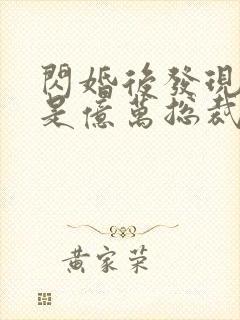 閃婚後發現
是億萬總裁
黃家榮